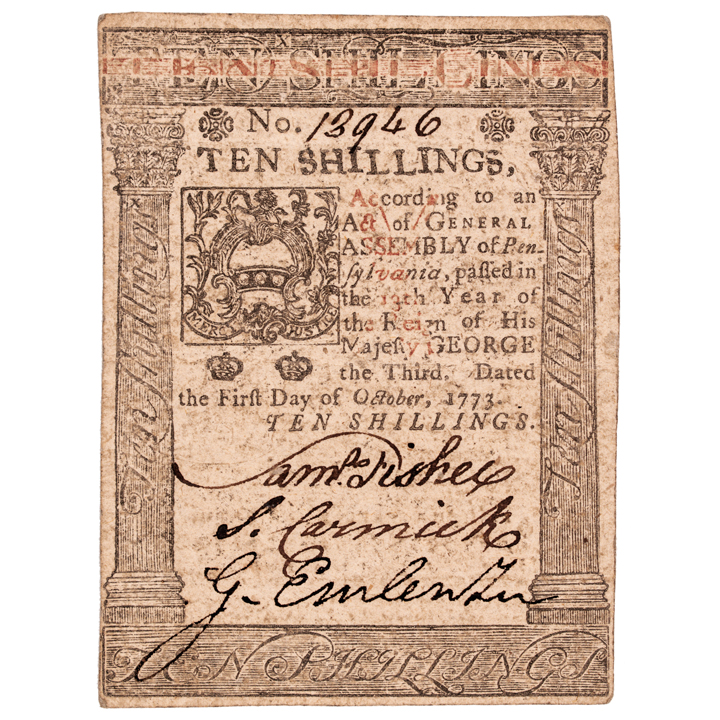 TEN SHILLINGS
No. 13946
TEN SHILLINGS,
MERCY JUSTICE
According to an
Act of GENERAL
ASSEMBLY of Pen-
ſylvania, paſſed in
the 13th Year of
the Reign of His
Majeſty GEORGE
the Third. Dated
the Firſt Day of October, 1773.
TEN SHILLINGS.
Ten Shillings
Ten Shillings
Saml. Fisher
S. Carmick
G. Emlen Jr
TEN SHILLINGS